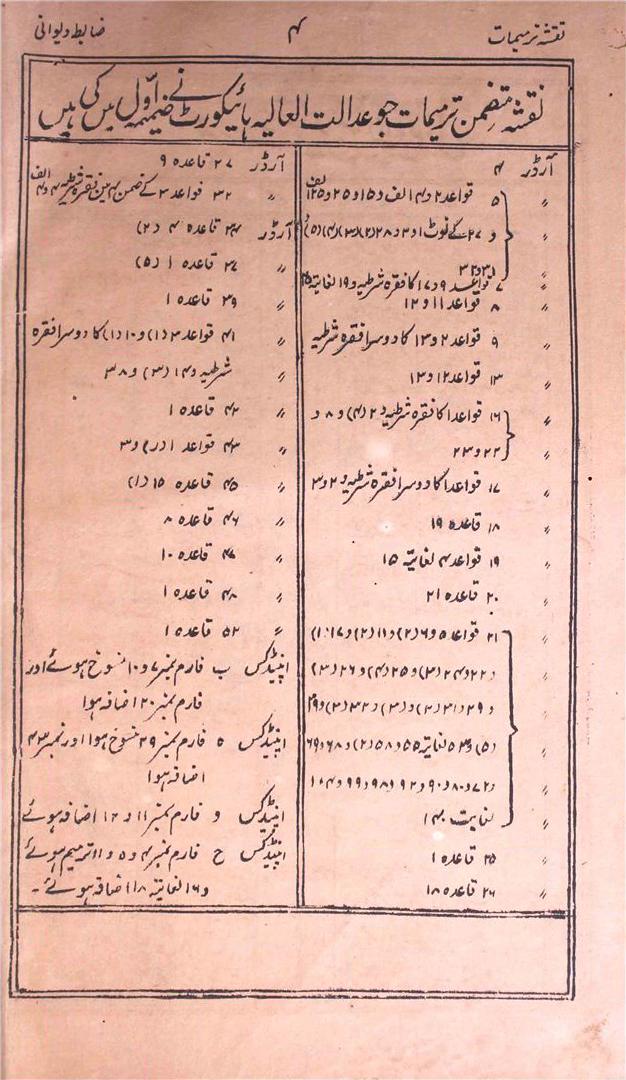 نقشہ ترمیمات
۴
ضابطہ دیوانی
نقشہ متضمن ترمیمات جو عدالت العالیہ ہائیکورٹ نے ضمیمہ اوّل میں کی ہیں
آرڈر ۴
〃 ۵ قواعد ۲ و ۴ الف و ۱۵ و ۲۵ و ۲۵ الف
〃 و ۲۷ کے نوٹ ۱ و ۳ و ۲۸ (۲) (۳) (۴) (۵)
〃 ۷ قواعد ۹ و ۱۷ کا فقرہ شرطیہ و ۱۹ لغایتہ ۲۵
〃 ۸ قواعد ۱۱ و ۱۲
〃 ۹ قواعد ۲ و ۱۳ کا دوسرا فقرہ شرطیہ
〃 ۱۳ قواعد ۱۲ و ۱۳
〃 ۱۶ قواعد ۱ کا فقرہ شرطیہ و ۲ (۴) و ۸ و
〃 ۲۲ و ۲۳
〃 ۱۷ قواعد ۱ کا دوسرا فقرہ شرطیہ و ۲ و ۳
〃 ۱۸ قاعدہ ۱۹
〃 ۱۹ قواعد ۴ لغایتہ ۱۵
〃 ۲۰ قاعدہ ۲۱
〃 ۲۱ قواعد ۵ و ۶ (۲) و ۱۱ (۲) و ۱۷ (۱)
〃 و ۲۲ و ۲۴ (۲) و ۲۵ (۴) و ۲۶ (۳)
〃 و ۲۹ و ۳۱ (۲) و (۳) و ۳۲ (۳) و ۴۹
〃 (۵) و ۵۳ لغایتہ ۵۵ و ۵۸ (۲) و ۶۸ و ۶۹
〃 و ۷۲ و ۸۰ و ۹۰ و ۹۲ و ۹۸ و ۹۹ و ۱۰۴
〃 لغایت ۱۴۰
〃 ۲۵ قاعدہ ۱
〃 ۲۶ قاعدہ ۱۸
آرڈر ۲۷ قاعدہ ۹
〃 ۳۲ قواعد ۳ کے ضمن ۴ میں فقرہ شرطیہ ۴ و ۴ الف
آرڈر ۳۴ قاعدہ ۴ (۲)
〃 ۳۷ قاعدہ ۱ (۵)
〃 ۳۹ قاعدہ ۱
〃 ۴۱ قواعد ۳ (۱) و ۱۰ (۱) کا دوسرا فقرہ
〃 شرطیہ و ۱۴ (۳) و ۳۸
〃 ۴۲ قاعدہ ۱
〃 ۴۳ قواعد ۱ (ر) و ۳
〃 ۴۵ قاعدہ ۱۵ (۱)
〃 ۴۶ قاعدہ ۸
〃 ۴۷ قاعدہ ۱۰
〃 ۴۸ قاعدہ ۱
〃 ۵۲ قاعدہ ۱
اپنیڈکس ب فارم نمبر ۷ و ۱۰ منسوخ ہوئے اور
فارم نمبر ۲۰ اضافہ ہوا
اپنیڈکس ہ فارم نمبر ۲۹ منسوخ ہوا اور نمبر ۴۳
اضافہ ہوا
اپنیڈکس و فارم نمبر ۱۱ و ۱۲ اضافہ ہوئے
اپنیڈکس ح فارم نمبر ۴ و ۵ و ۱۱ ترمیم ہوئے
و ۱۶ لغایتہ ۱۸ اضافہ ہوئے۔